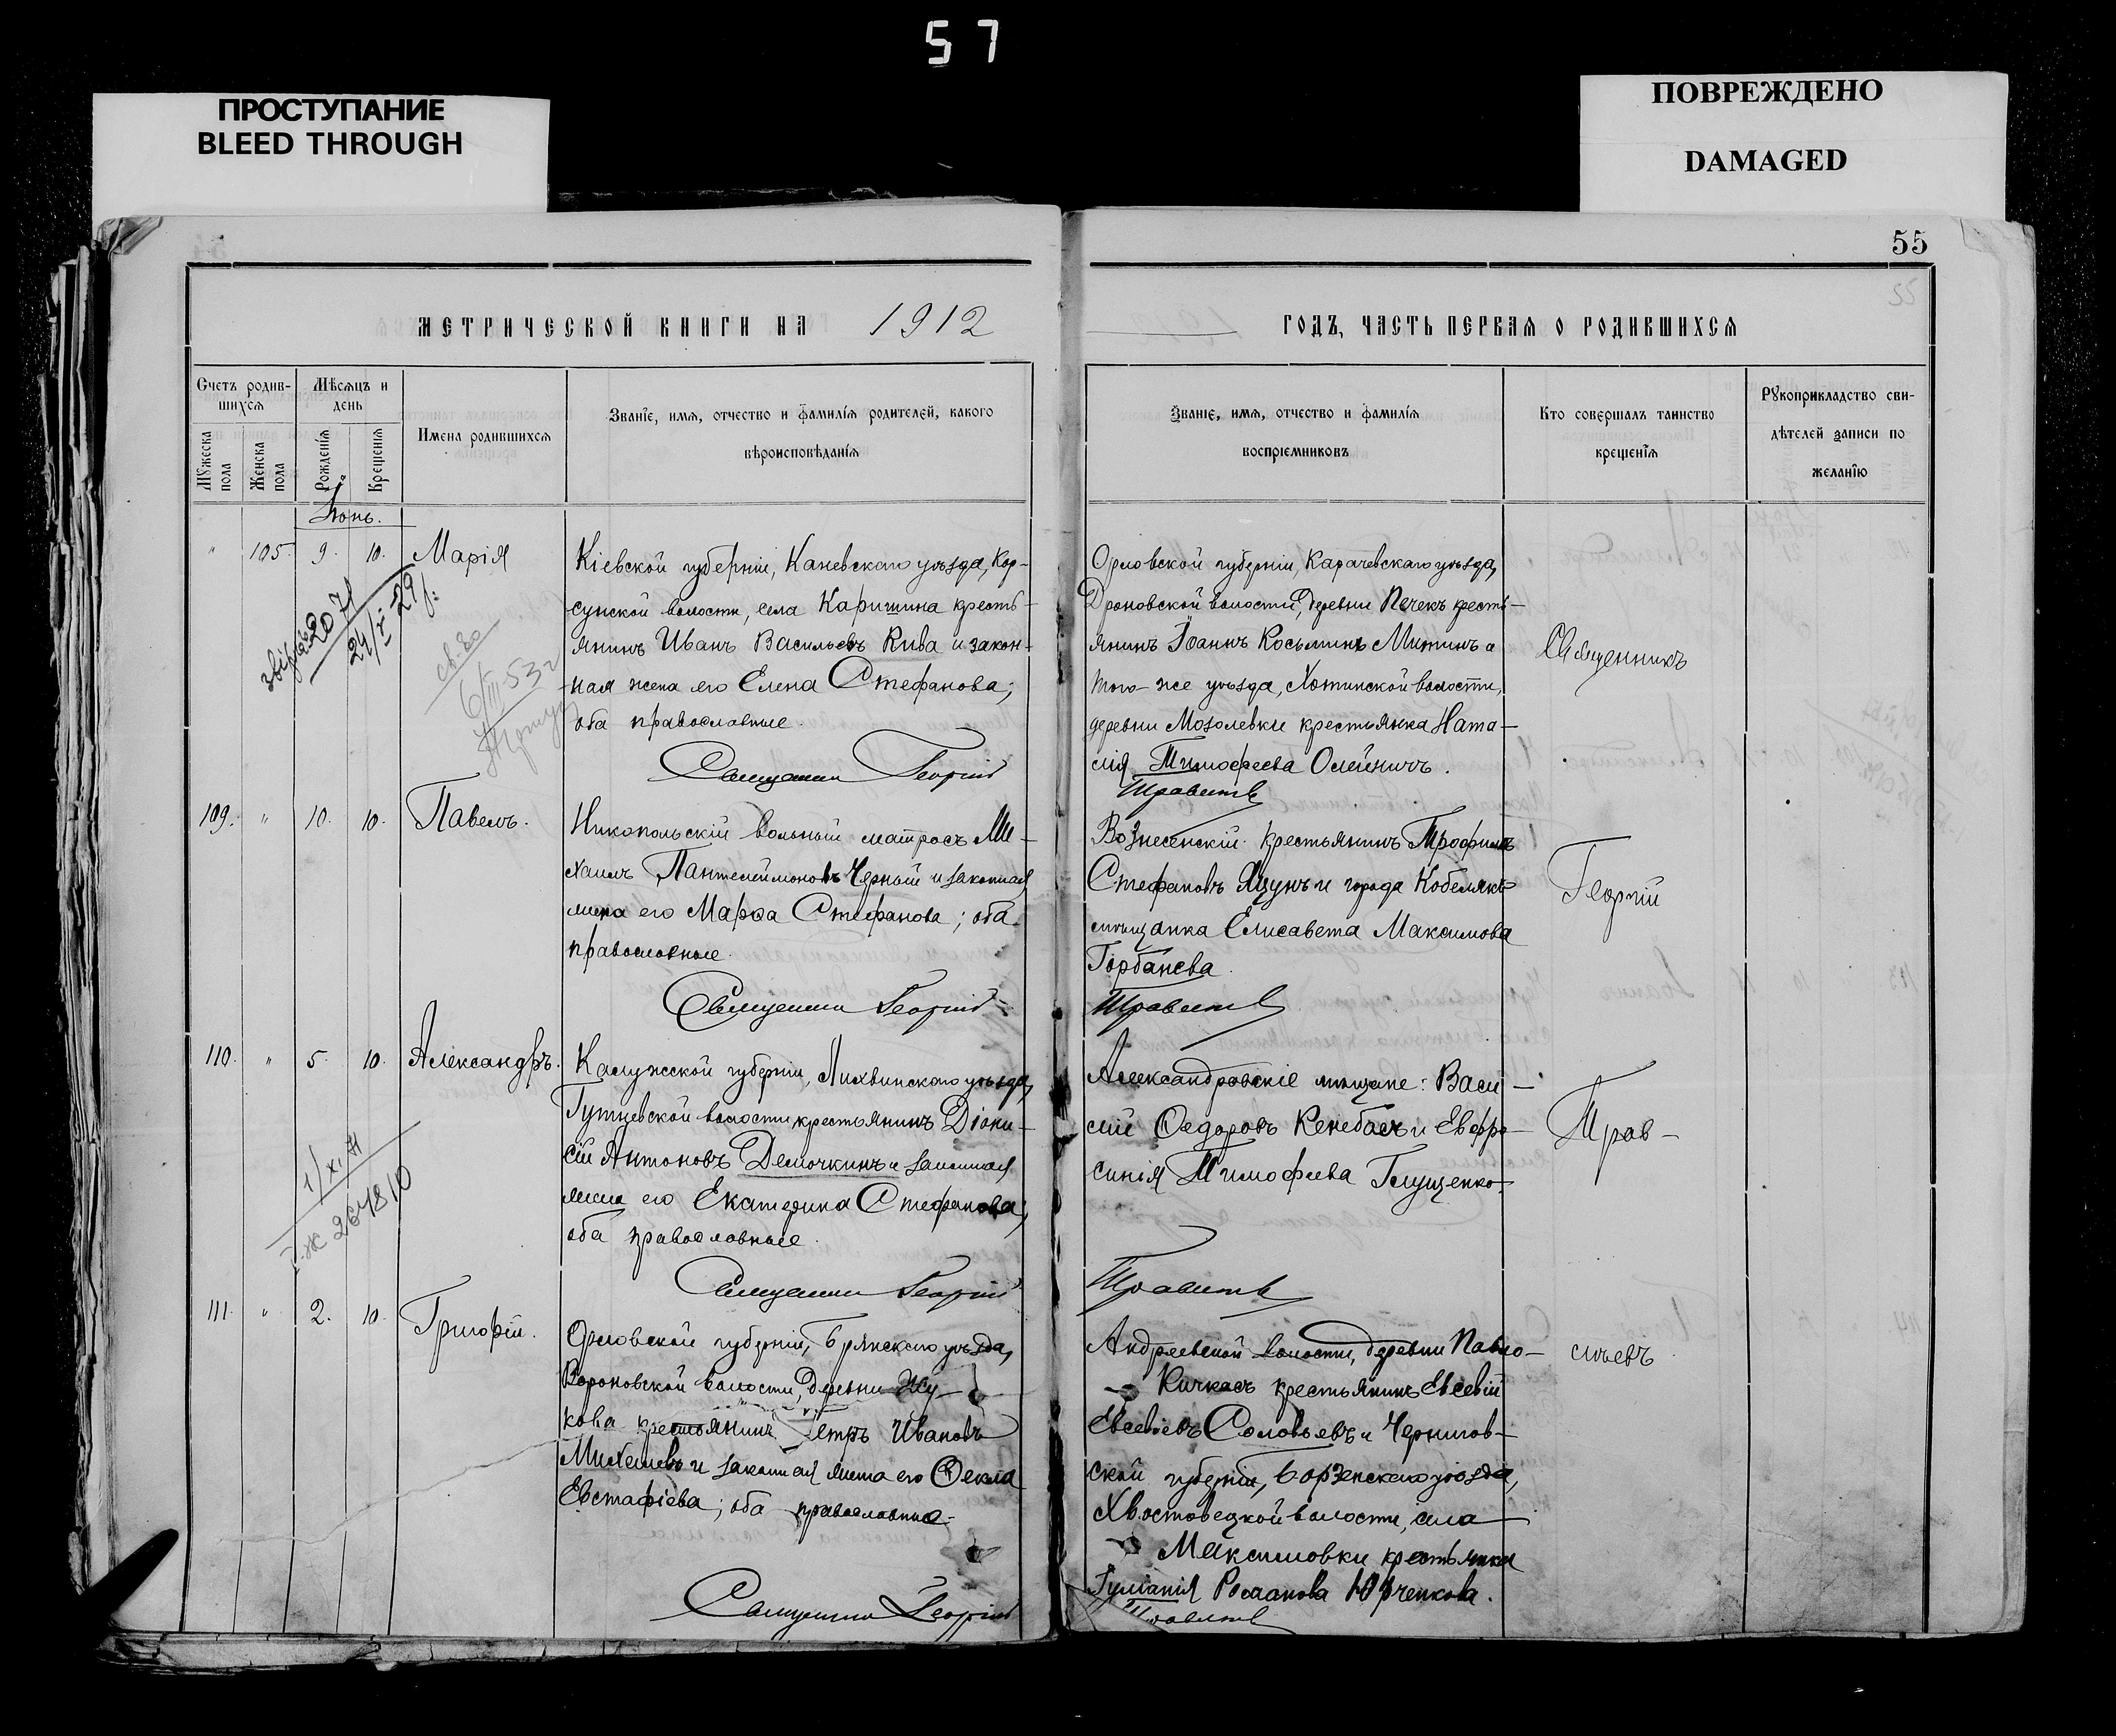 57
ПРОСТУПАНИЕ
BLEED THROUGH
ПОВРЕЖДЕНО
DAMAGED
55
55
МЕТРИЧЕСКОЙ КНИГИ НА 1912
ГОДЪ, ЧАСТЬ ПЕРВАЯ О РОДИВШИХСЯ
Счетъ родив-
шихся
Мужеска пола
Женска пола
Мѣсяцъ и
день
Рожденія
Крещенія
Имена родившихся
Званіе, имя, отчество и фамилія родителей, какого
вѣроисповѣданія
Званіе, имя, отчество и фамилія
воспріемниковъ
Кто совершалъ таинство
крещенія
Рукоприкладство сви-
дѣтелей записи по
желанію
Іюнь.
" 105. 9. 10. Марія
Кіевской губерніи, Каневскаго уѣзда, Кор-
сунской волости, села Каришина кресть-
янинъ Иванъ Васильевъ Кива и закон-
ная жена его Елена Стефанова;
оба православные.
Священникъ Георгій
Орловской губерніи, Карачевскаго уѣзда,
Дроновской волости, деревни Печекъ кресть-
янинъ Іоаннъ Косьминъ Митинъ и
того-же уѣзда, Хотинской волости,
деревни Мозолевки крестьянка Ната-
лія Тимофеева Олейничъ.
2071
24/V 29 г.
св-во
6/III-53 г
109. " 10. 10. Павелъ.
Никопольскій вольный матросъ Ми-
хаилъ Пантелеймоновъ Черный и законная
жена его Марѳа Стефанова; оба
православные.
Священникъ Георгій
Вознесенскій крестьянинъ Трофимъ
Стефановъ Яцунъ и города Кобелякъ
мѣщанка Елисавета Максимова
Горбанева.
110. " 5. 10. Александръ.
Калужской губерніи, Лихвинскаго уѣзда,
волости крестьянинъ Діони-
сій Антоновъ Демочкинъ и законная
жена его Екатерина Стефанова,
оба православные.
Священникъ Георгій
Александровскіе мѣщане: Васи-
лій Ѳедоровъ Кенебасъ и Евфро-
синія Тимофеева Глущенко.
1/XI 41
264810
111. " 2. 10. Григорій.
Орловской губерніи, Брянскаго уѣзда,
Вороновской волости, деревни Жу-
кова крестьянинъ Петръ Ивановъ
и законная жена его Ѳекла
Евстафіева; оба православные.
Священникъ Георгій
Андреевской волости, деревни Павло-
Кичкасъ крестьянинъ Евсевій
Евсевіевъ Соловьевъ и Чернигов-
ской губерніи, Борзенскаго уѣзда,
волости, села
Максимовки крестьянка
Іуліанія Романова Юрченкова.
Священникъ
Георгій